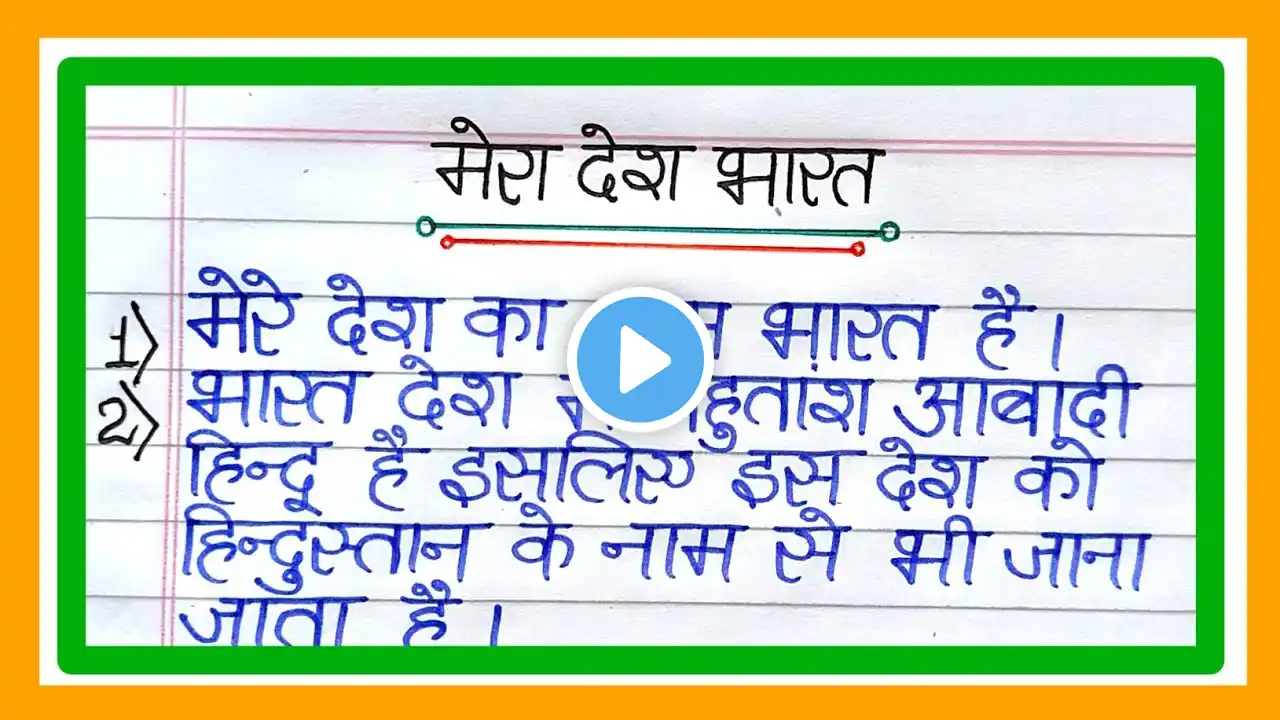 मेरा देश भारत
1) मेरे देश का भारत है।
2) भारत देश आबादी
हिन्दू है इसलिए इस देश को
हिन्दुस्तान के नाम से भी जाना
जाता है।